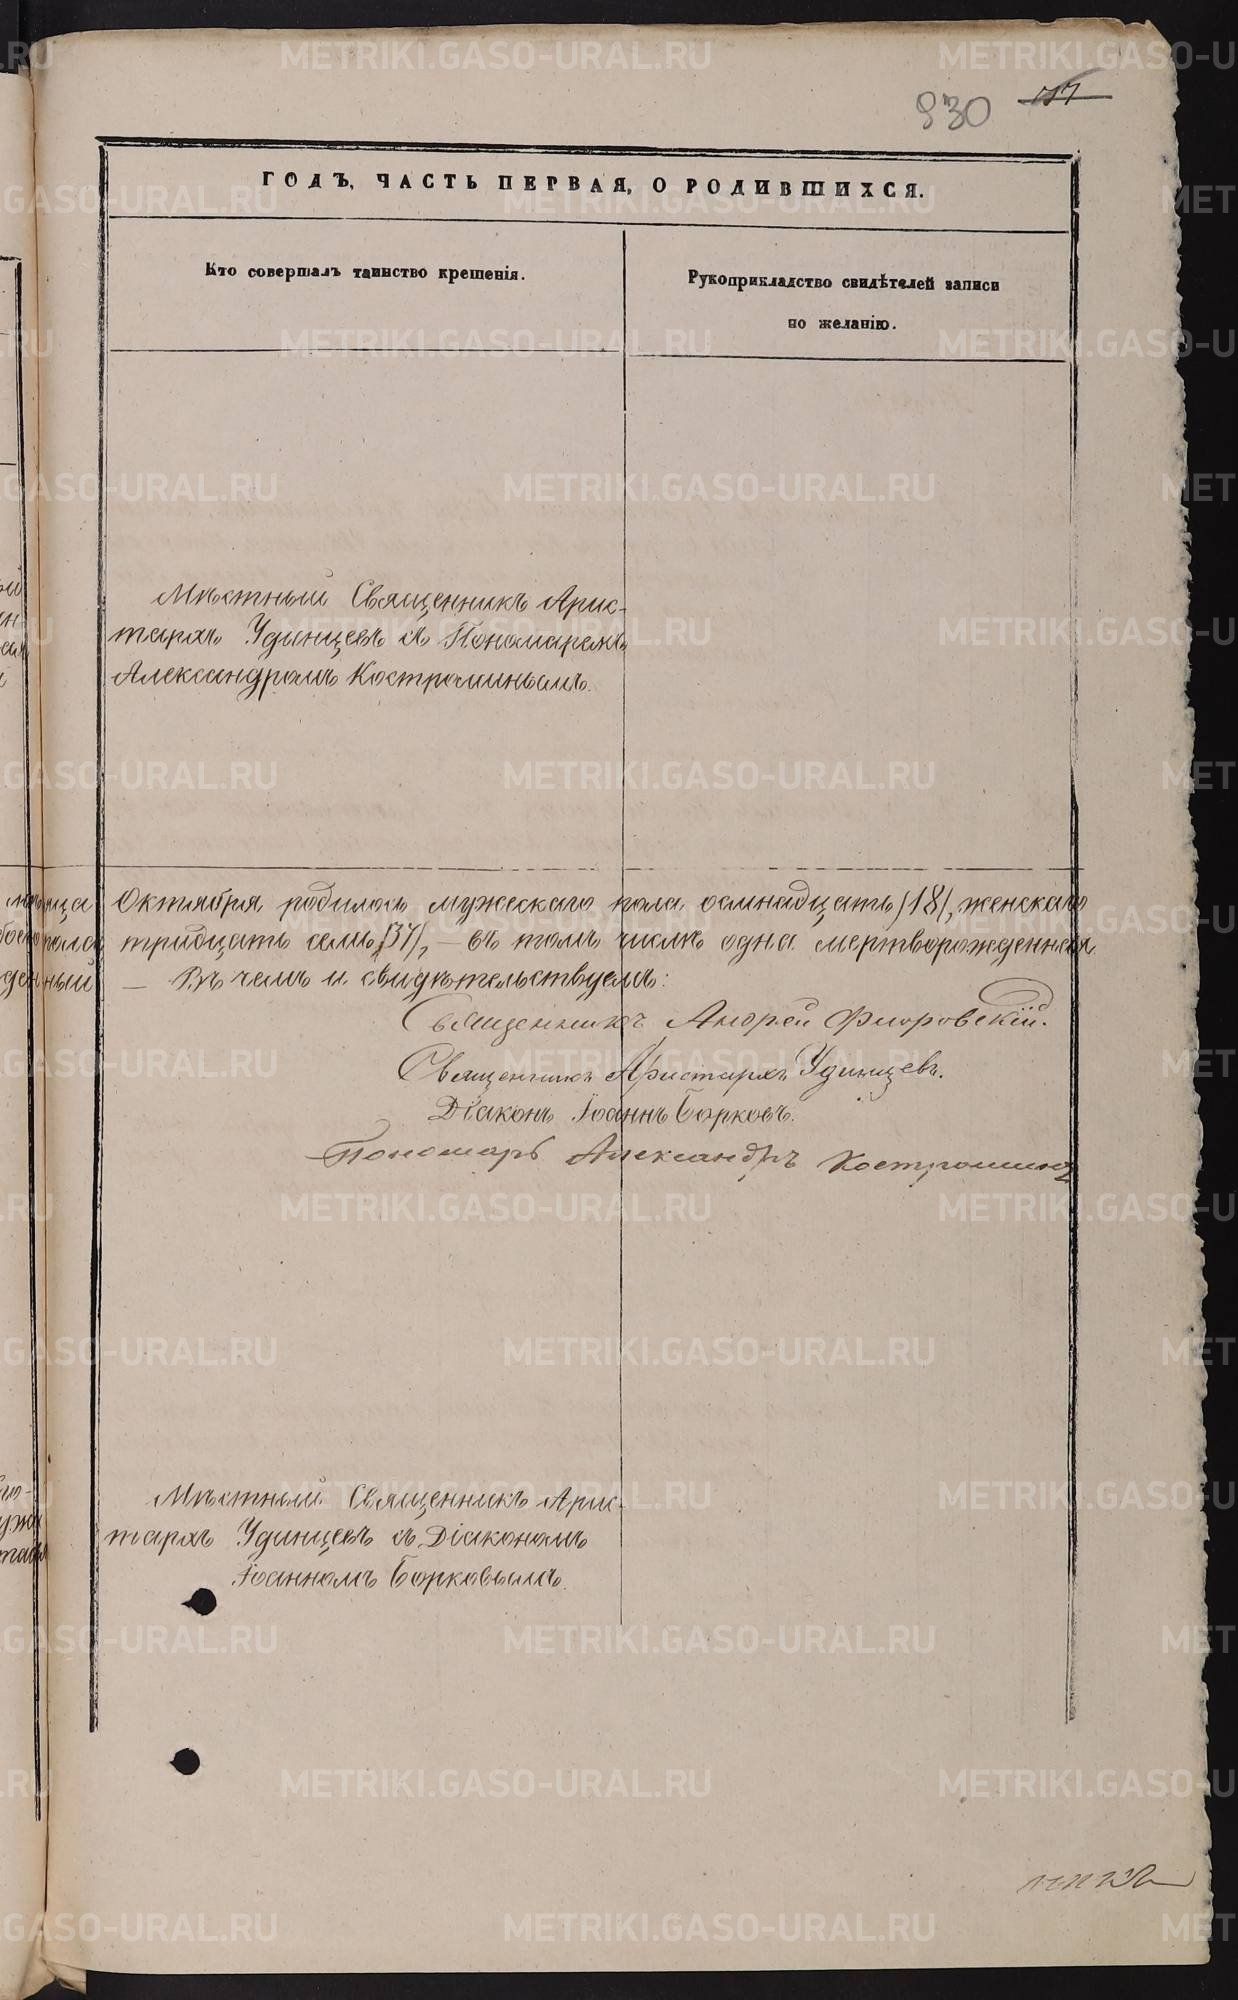 830
ГОДЪ, ЧАСТЬ ПЕРВАЯ, О РОДИВШИХСЯ.
Кто совершалъ таинство крещенія.
Рукоприкладство свидѣтелей записи
по желанію.
Мѣстный Священникъ Арис-
тархъ Удинцевъ съ Пономаремъ
Александромъ Костроминымъ.
Октября родилось мужескаго пола осмнадцать /18/, женскаго
пола тридцать семь /37/, — въ томъ числѣ одна мертворожденная.
— Въ чемъ и свидѣтельствуемъ:
Священникъ Андрей Флоровскій.
Священникъ Аристархъ Удинцевъ.
Діаконъ Іоаннъ Борковъ.
Пономарь Александръ Костроминъ
Мѣстный Священникъ Арис-
тархъ Удинцевъ съ Діакономъ
Іоанномъ Борковымъ.
METRIKI.GASO-URAL.RU